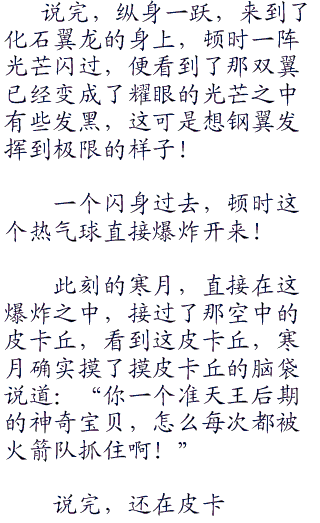 说完，纵身一跃，来到了
化石翼龙的身上，顿时一阵
光芒闪过，便看到了那双翼
已经变成了耀眼的光芒之中
有些发黑，这可是想钢翼发
挥到极限的样子！
一个闪身过去，顿时这
个热气球直接爆炸开来！
此刻的寒月，直接在这
爆炸之中，接过了那空中的
皮卡丘，看到这皮卡丘，寒
月确实摸了摸皮卡丘的脑袋
说道：“你一个准天王后期
的神奇宝贝，怎么每次都被
火箭队抓住啊！”
说完，还在皮卡